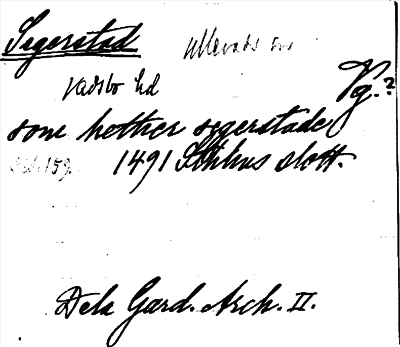 Segerstad Ullervads sn
Vadsbo hd Vg.?
som hether segerstade
1491 Sthlms slott.
Dela Gard. Arch. II.